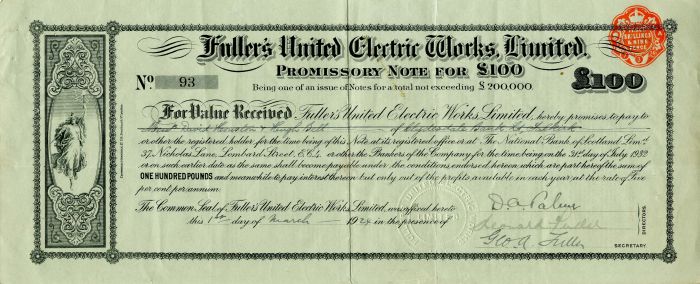 Fuller's United Electric Works, Limited.
PROMISSORY NOTE FOR £100
Nº 93
Being one of an issue of Notes for a total not exceeding £200,000.
£100
SHILLINGS
& NINE
PENCE
For Value Received Fuller's United Electric Works Limited, hereby promises to pay to
David & Hugh of Clydesdale Bank
or other the registered holder for the time being of this Note at its registered office or at The National Bank of Scotland Limd.
37, Nicholas Lane, Lombard Street, E.C.4. or other the Bankers of the Company for the time being on the 31st day of July 1932
or on such earlier date as the same shall become payable under the conditions endorsed hereon, which are part hereof the sum of
ONE HUNDRED POUNDS and meanwhile to pay interest thereon but only out of the profits available in each year at the rate of Five
per cent. per annum.
The Common Seal of Fuller's United Electric Works, Limited, was affixed hereto
this 1st day of March 1924 in the presence of
D.A.
Leonard Fuller
Geo. A. Fuller
DIRECTORS
SECRETARY